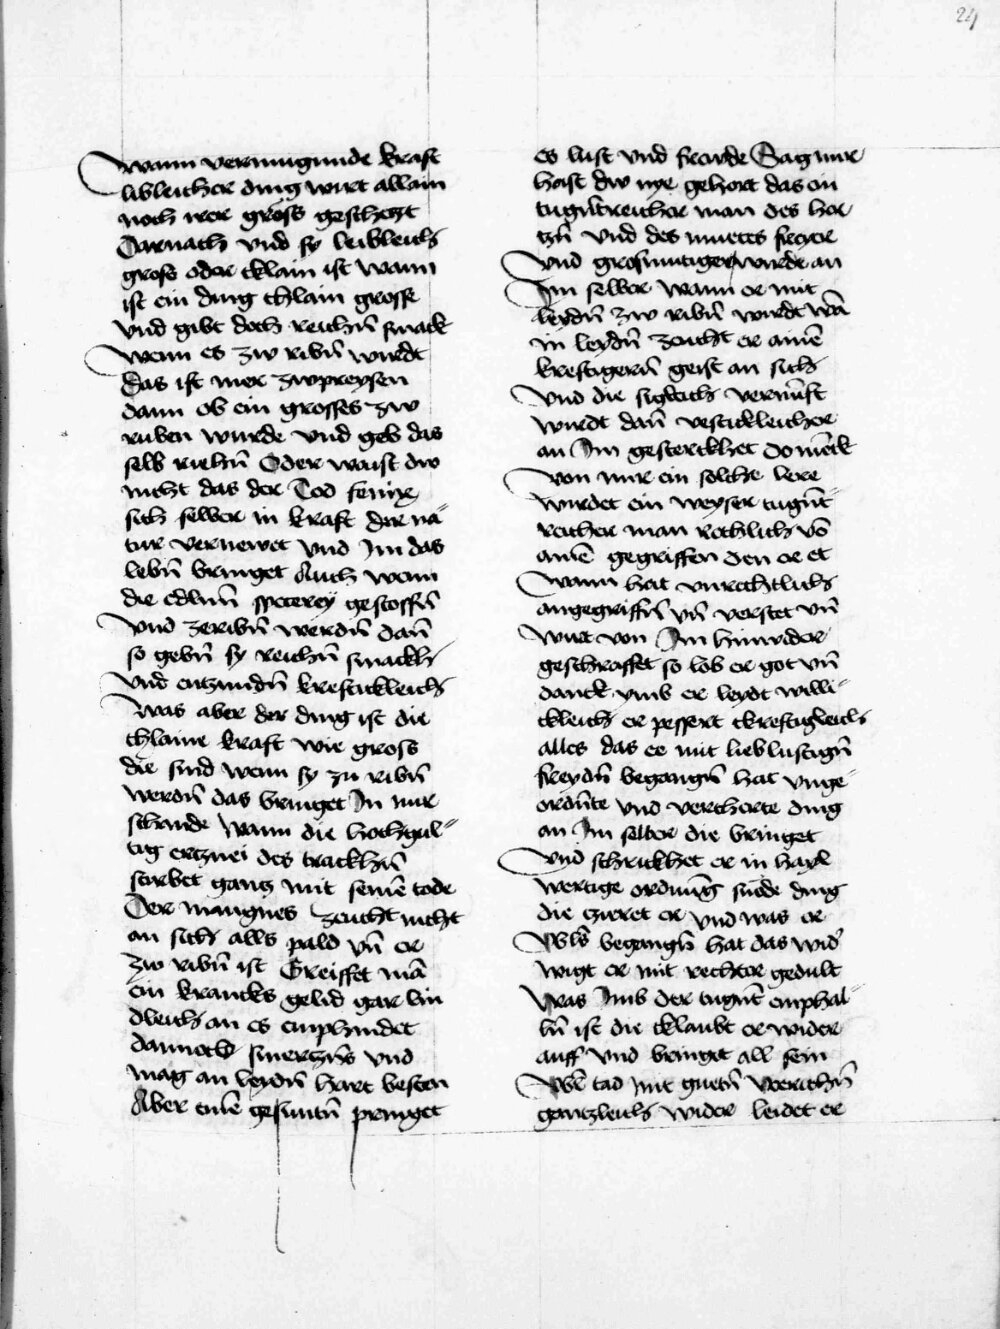 24
Wann vermugunde kraft
libleicher ding wirt allain
noch irer gröss geschetzt
Darnach vnd sy leibleich
gross oder cklain ist wann
ist ein ding chlain grosse
vnd gibt doch reichñ smack
wenn es zw ribñ wurdt
das ist mer zwpreysen
dann ob ein grosses zw
riben wurde vnd geb das
selb riehñ Oder waist dw
nicht das der Tod fenix
sich selber in kraft der na-
tur vernewet vnd Im das
lebñ bringet Auch wenn
die edlnn specerey gestossñ
vnd zeribñ werdñ dañ
so gebñ sy reichñ smackh
vnd entzundñ kreftickleich
Was aber der ding ist die
chlaine kraft wie gross
die sind wenn sy zu ribñ
werdñ das bringet In nur
schande Wann die hochgul-
tig ertznei des trackhñ
stirbet gantz mit seinē tode
Der mangnes zeucht nicht
an sich alls pald vñ er
zw ribñ ist Greiffet mā
ein krancks gelid gar lin
dleich an es emphindet
dannoch smertzñs vnd
mag an leydñ hart besten
Aber einē gesuntñ pringet
es lust vnd freyde Sag mir
hast dw nye gehort das ein
tugñtreicher man des her
tzñ vnd des muetes freyer
vnd grosmutiger wurde an
Im selber wann er mit
leydñ zw ribñ wurdt wā
in leydñ zeucht er ainē
kreftigerñ geist an sich
vnd die sigleich vernūft
wurdt dañ vestickleicher
an Im gesterckhet Do merk
von mir ein solche lere
wurdet ein weyser tugñt-
reicher man rechlich vō
ainē gegriffen den er et
wann hat vnrechtlich
angegriffñ vñ verstet vñ
wirt von Im hinwider
geschraffet so lob er got vñ
danck vmb er leydt willi-
ckleich er pessert ckreftigkleich
alles das er mit lieblustigñ
freydñ begangñ hat vnge-
ordñte vnd vercherte ding
an Im selber die bringet
vnd schickhet er in hayl
wertige ordnūg snöde ding
die zieret er vnd was er
vbls begangñ hat das wid̄
wigt er mit rechter gedult
Was Imb der tugñt emphal-
lñ ist die cklaubt er wider
auff vnd bringet all sein
vbl tad mit guetñ werichñ
gantzleich wider leidet er